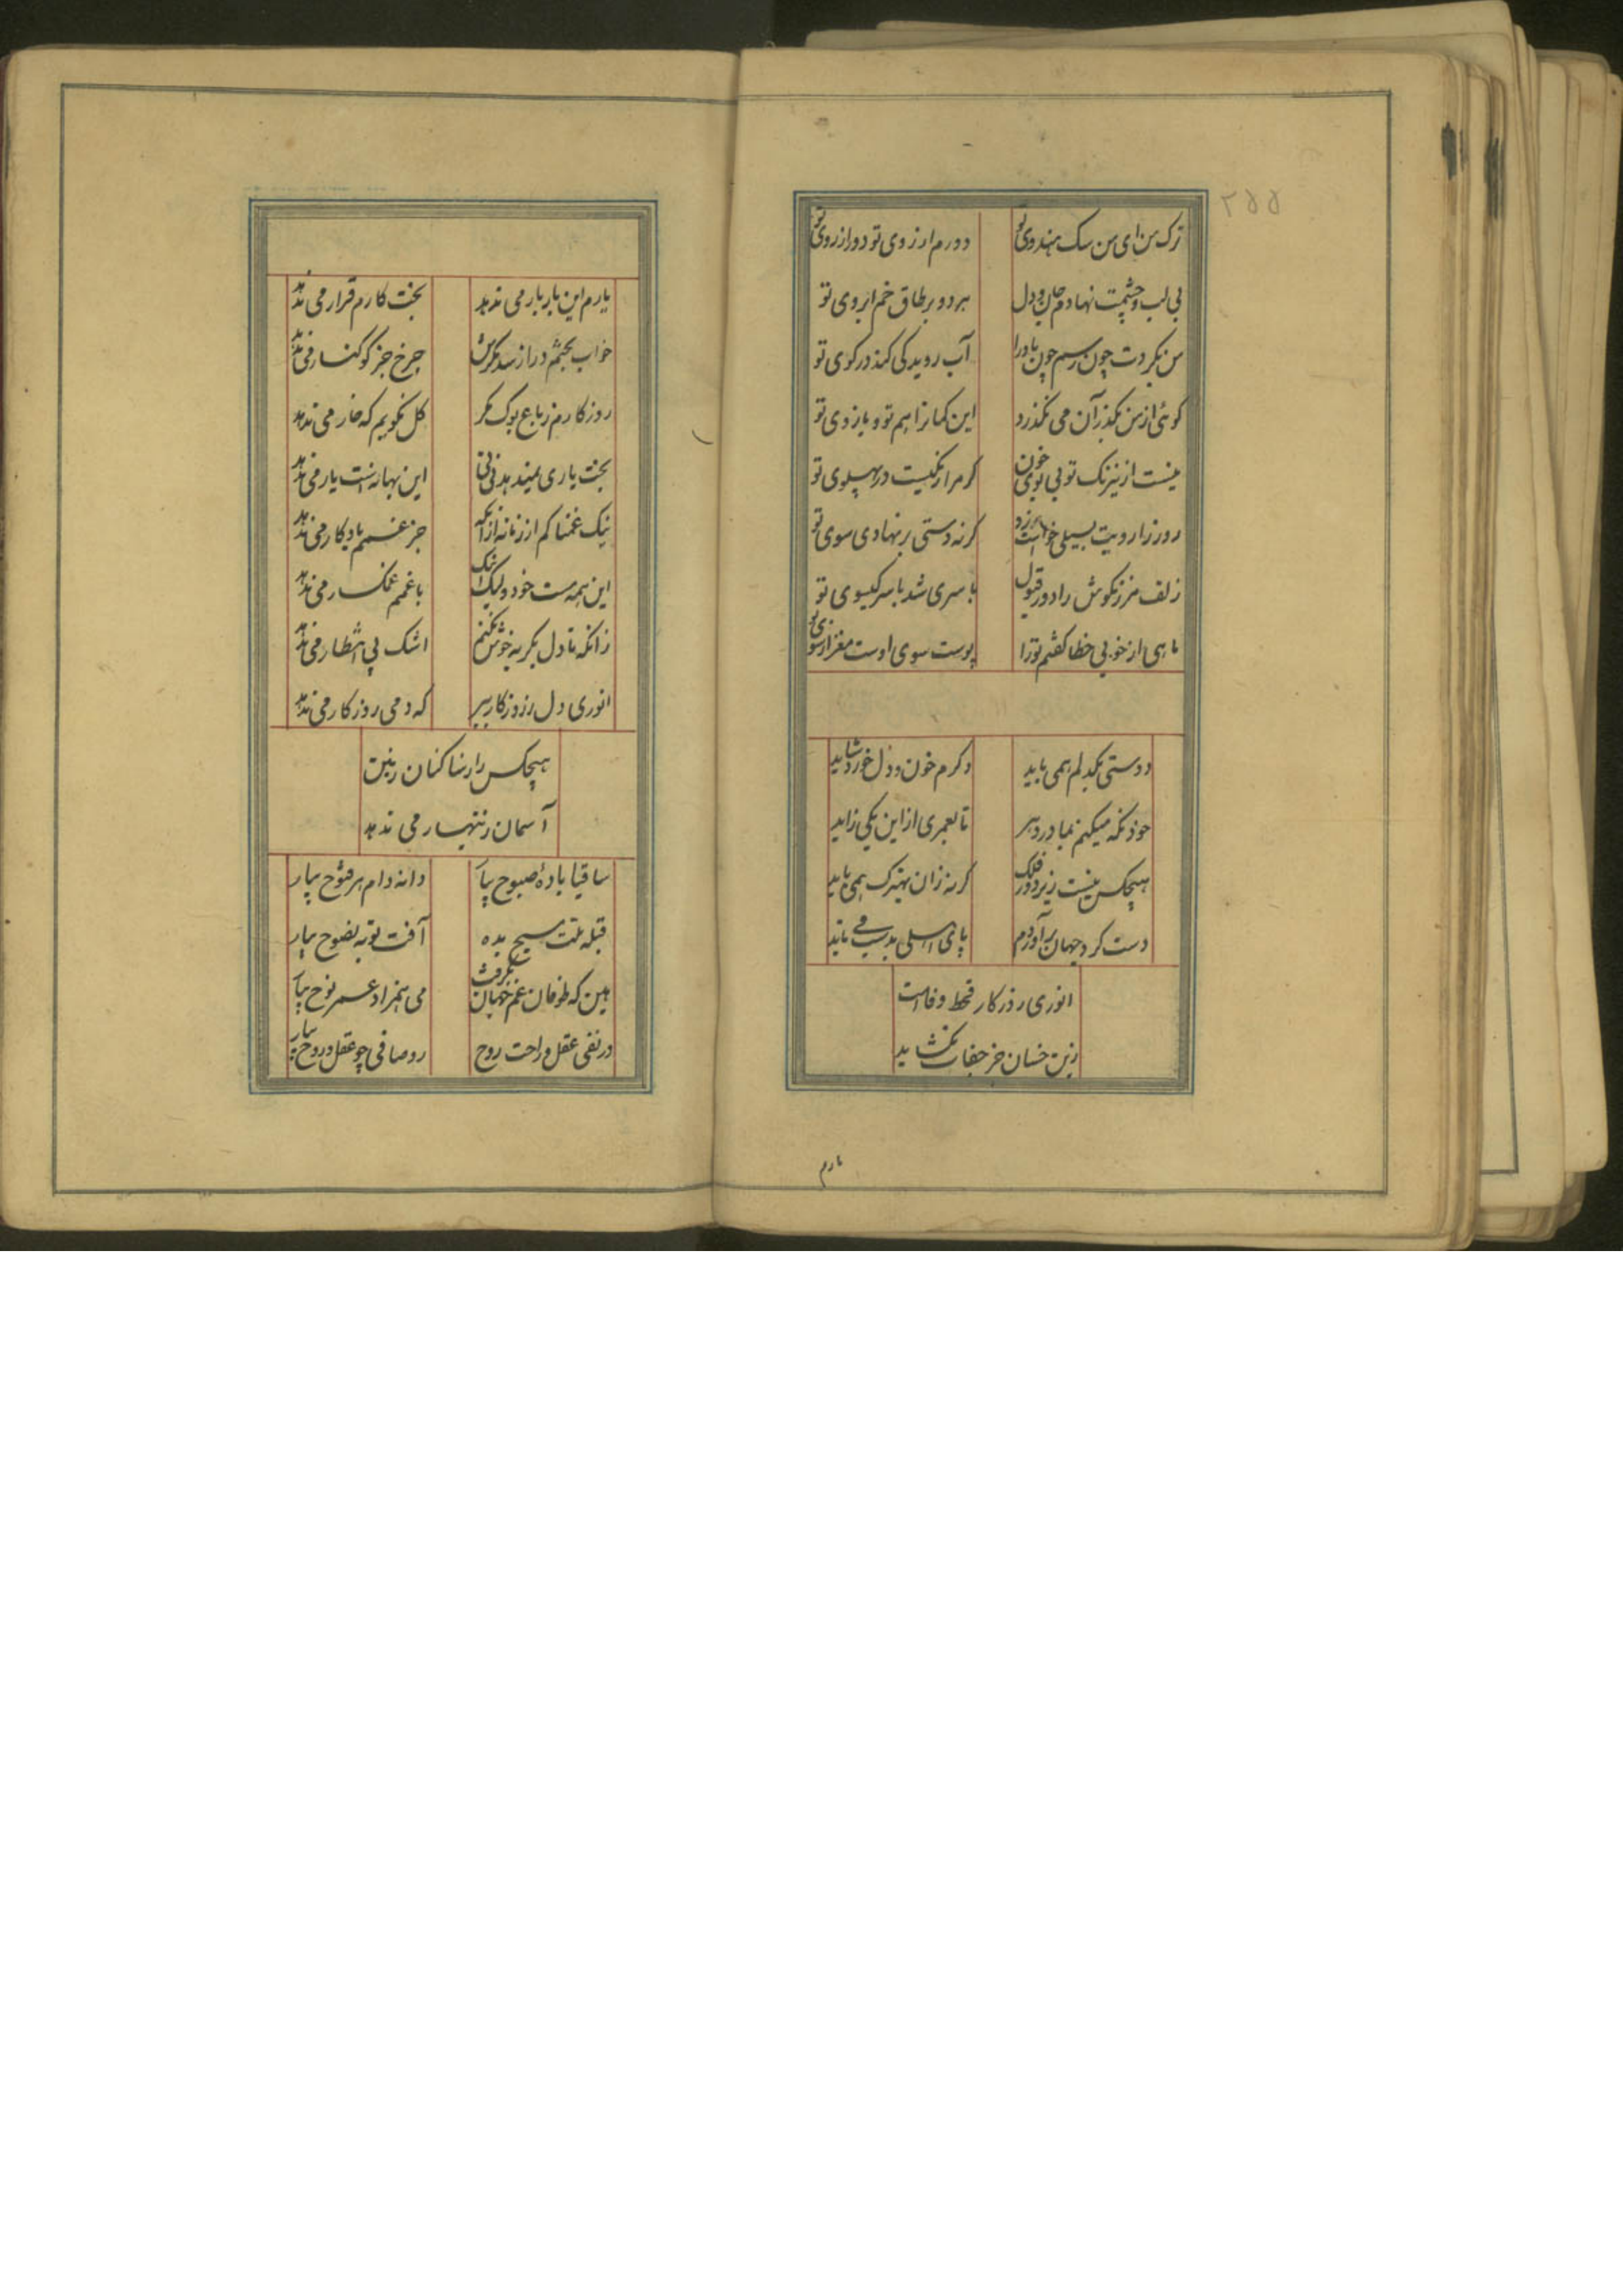 ۲۵۵
ترک من ای من سک هندوی تو دورم از روی تو دور از روی تو
بی لب و چشمت نهادم جان و دل هر دو بر طاق خم ابروی تو
من بکردت چون رسم چون باد را آب روید کی کند در کوی تو
کوئی از من بکذر آن می نکذرد این کمانرا هم تو و بازوی تو
نیست از نیرنک تو بی خون کرم را رنکیست در پهلوی تو
روز را رویت بسیلی خواست زد کر نه دستی بر نهادی سوی تو
زلف مرزنکوش را دور قبول با سری شد با سر کیسوی تو
ماهی از خوبی خطا کفتم تو را پوست سوی اوست مغز از سوی تو
دوستی یکدلم همی باید ور کرم خون و دل خورد شاید
خود نکه میکنم بمادر دهر تا بعمری از این یکی زاید
هیچکس نیست زیر دور فلک کر نه زان بهترک همی باید
دست کرد جهان برآوردم پای اسلی بدست می ناید
انوری روزکار قحط وفاست
زین خسان جز جفات نکشاید
یارم
یارم این بار بار می ندهد بخت کارم قرار می ندهد
خواب بختم دراز شد مکرش چرخ جز کوکنار می ندهد
روزکارم ز باغ بوک و مکر کل نکویم که خار می ندهد
بخت یاری نمیدهد نی نی این بهانه است یار می ندهد
نیک غمناکم از زمانه از آنکه جز غمم یادکار می ندهد
این همه هست خود ولیک اشک با غمم غمکسار می ندهد
زانکه تا دل بکریه خوش نکنم اشک بی انتظار می ندهد
انوری دل ز روزکار ببر که دمی روزکار می ندهد
هیچکس را رضا کنان زین
آسمان زینهار می ندهد
ساقیا باده صبوح بیار دانه دام هر فتوح بیار
قبله ملت مسیح بده آفت توبه نصوح بیار
هین که طوفان غم جهان بکرفت می همزاد عمر نوح بیار
در نفی عقل و راحت روح رو صافی چو عقل و روح بیار